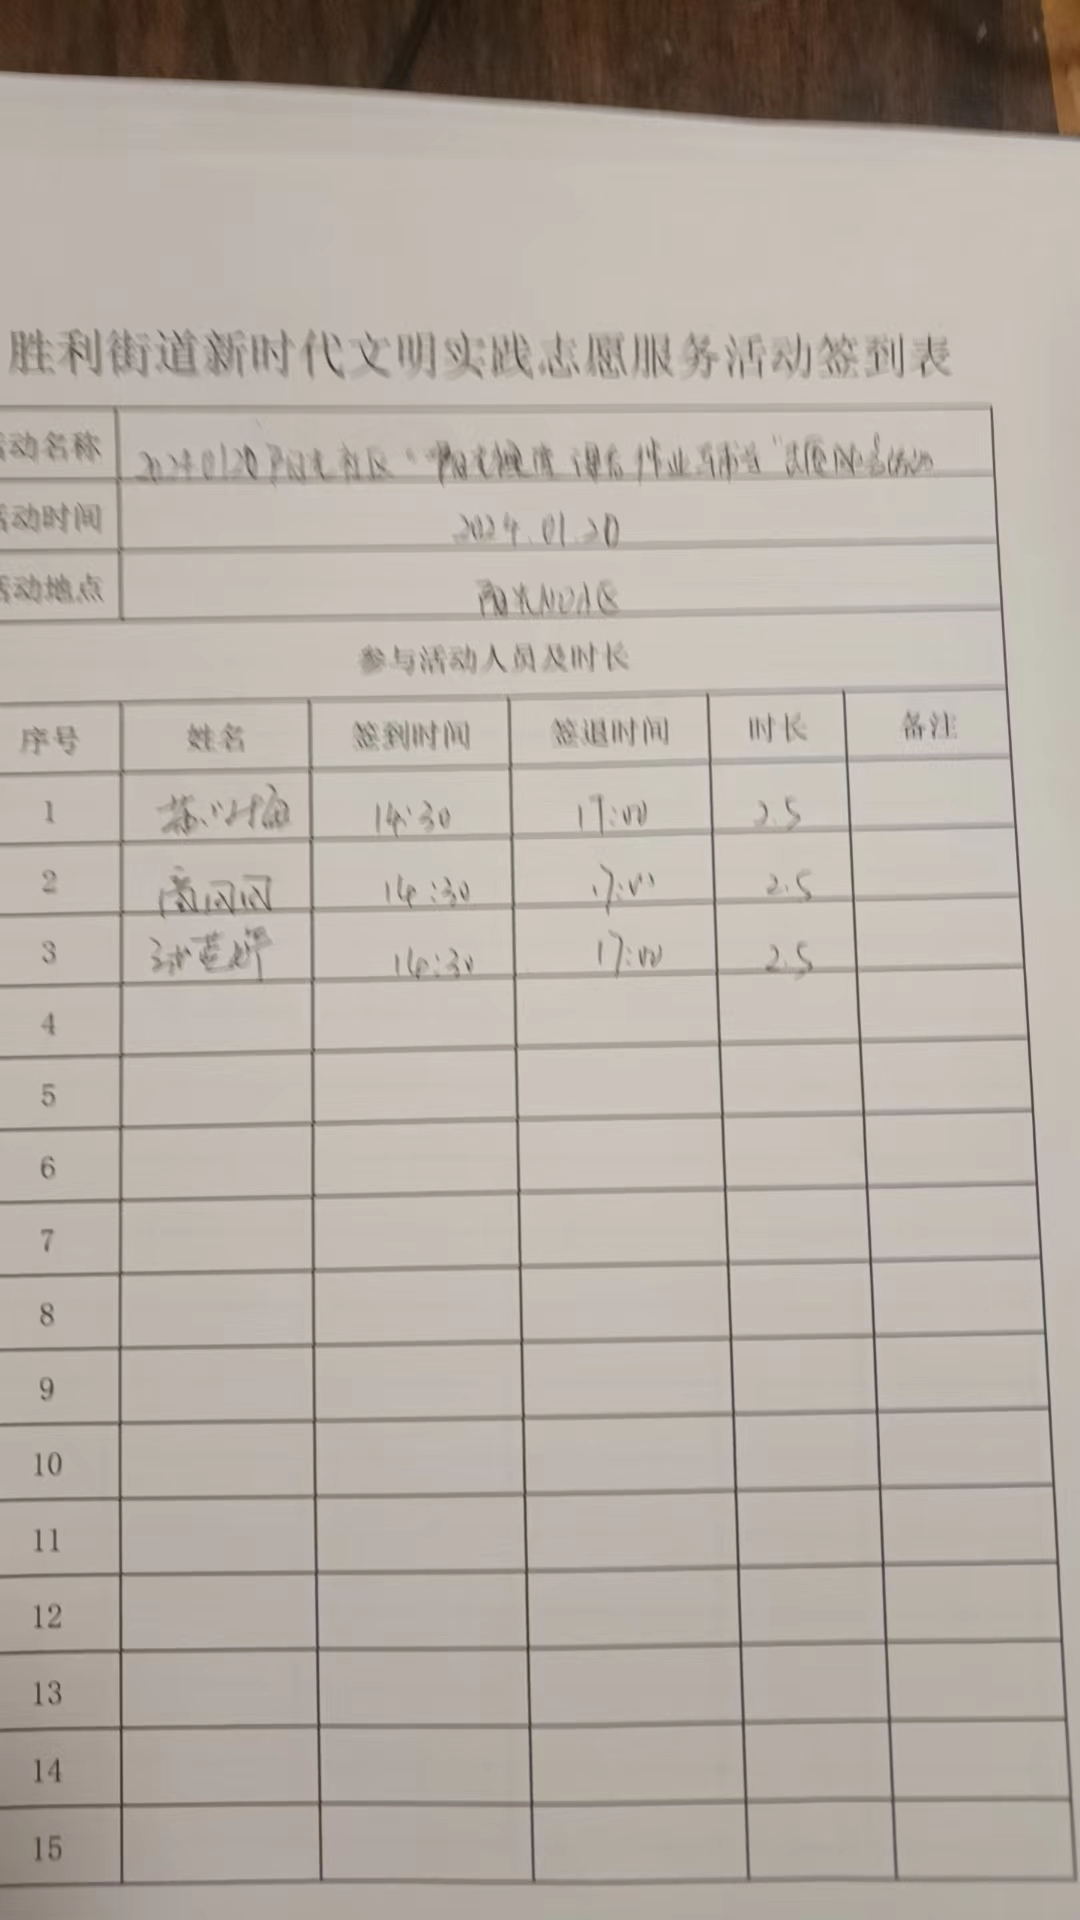 胜利街道新时代文明实践志愿服务活动签到表
活动名称 20240120阳光社区“阳光 课后作业辅导”志愿服务活动
活动时间 2024.01.20
活动地点 阳光社区
参与活动人员及时长
序号 姓名 签到时间 签退时间 时长 备注
1 14:30 17:00 2.5
2 14:30 17:00 2.5
3 14:30 17:00 2.5
4
5
6
7
8
9
10
11
12
13
14
15